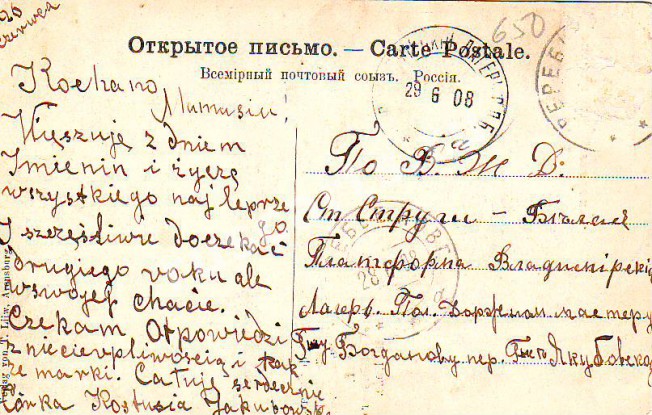 20
czerwca
650
Открытое письмо. — Carte Postale.
Всемірный почтовый союзъ. Россія.
29 6 08
Kochano
Mamusiu!
Więszuję z dniem
Imienin i życzę
wszystkiego najleprze
go
I szczęśliwie doczekać
drugiego roku ale
wswojej chacie.
Czekam Otpowiedzi
z niecierpliwością i tak
że marki. Całuję serdecznie
Córka Kostusia Jakubowsk
По В. Ж Д:
Ст Струги - Бѣлая
Платформа Владимірскі
Лагерь Пол. дорожнам мастеру
Богданову пер. Якубовско
Verlag von T. Augsburg